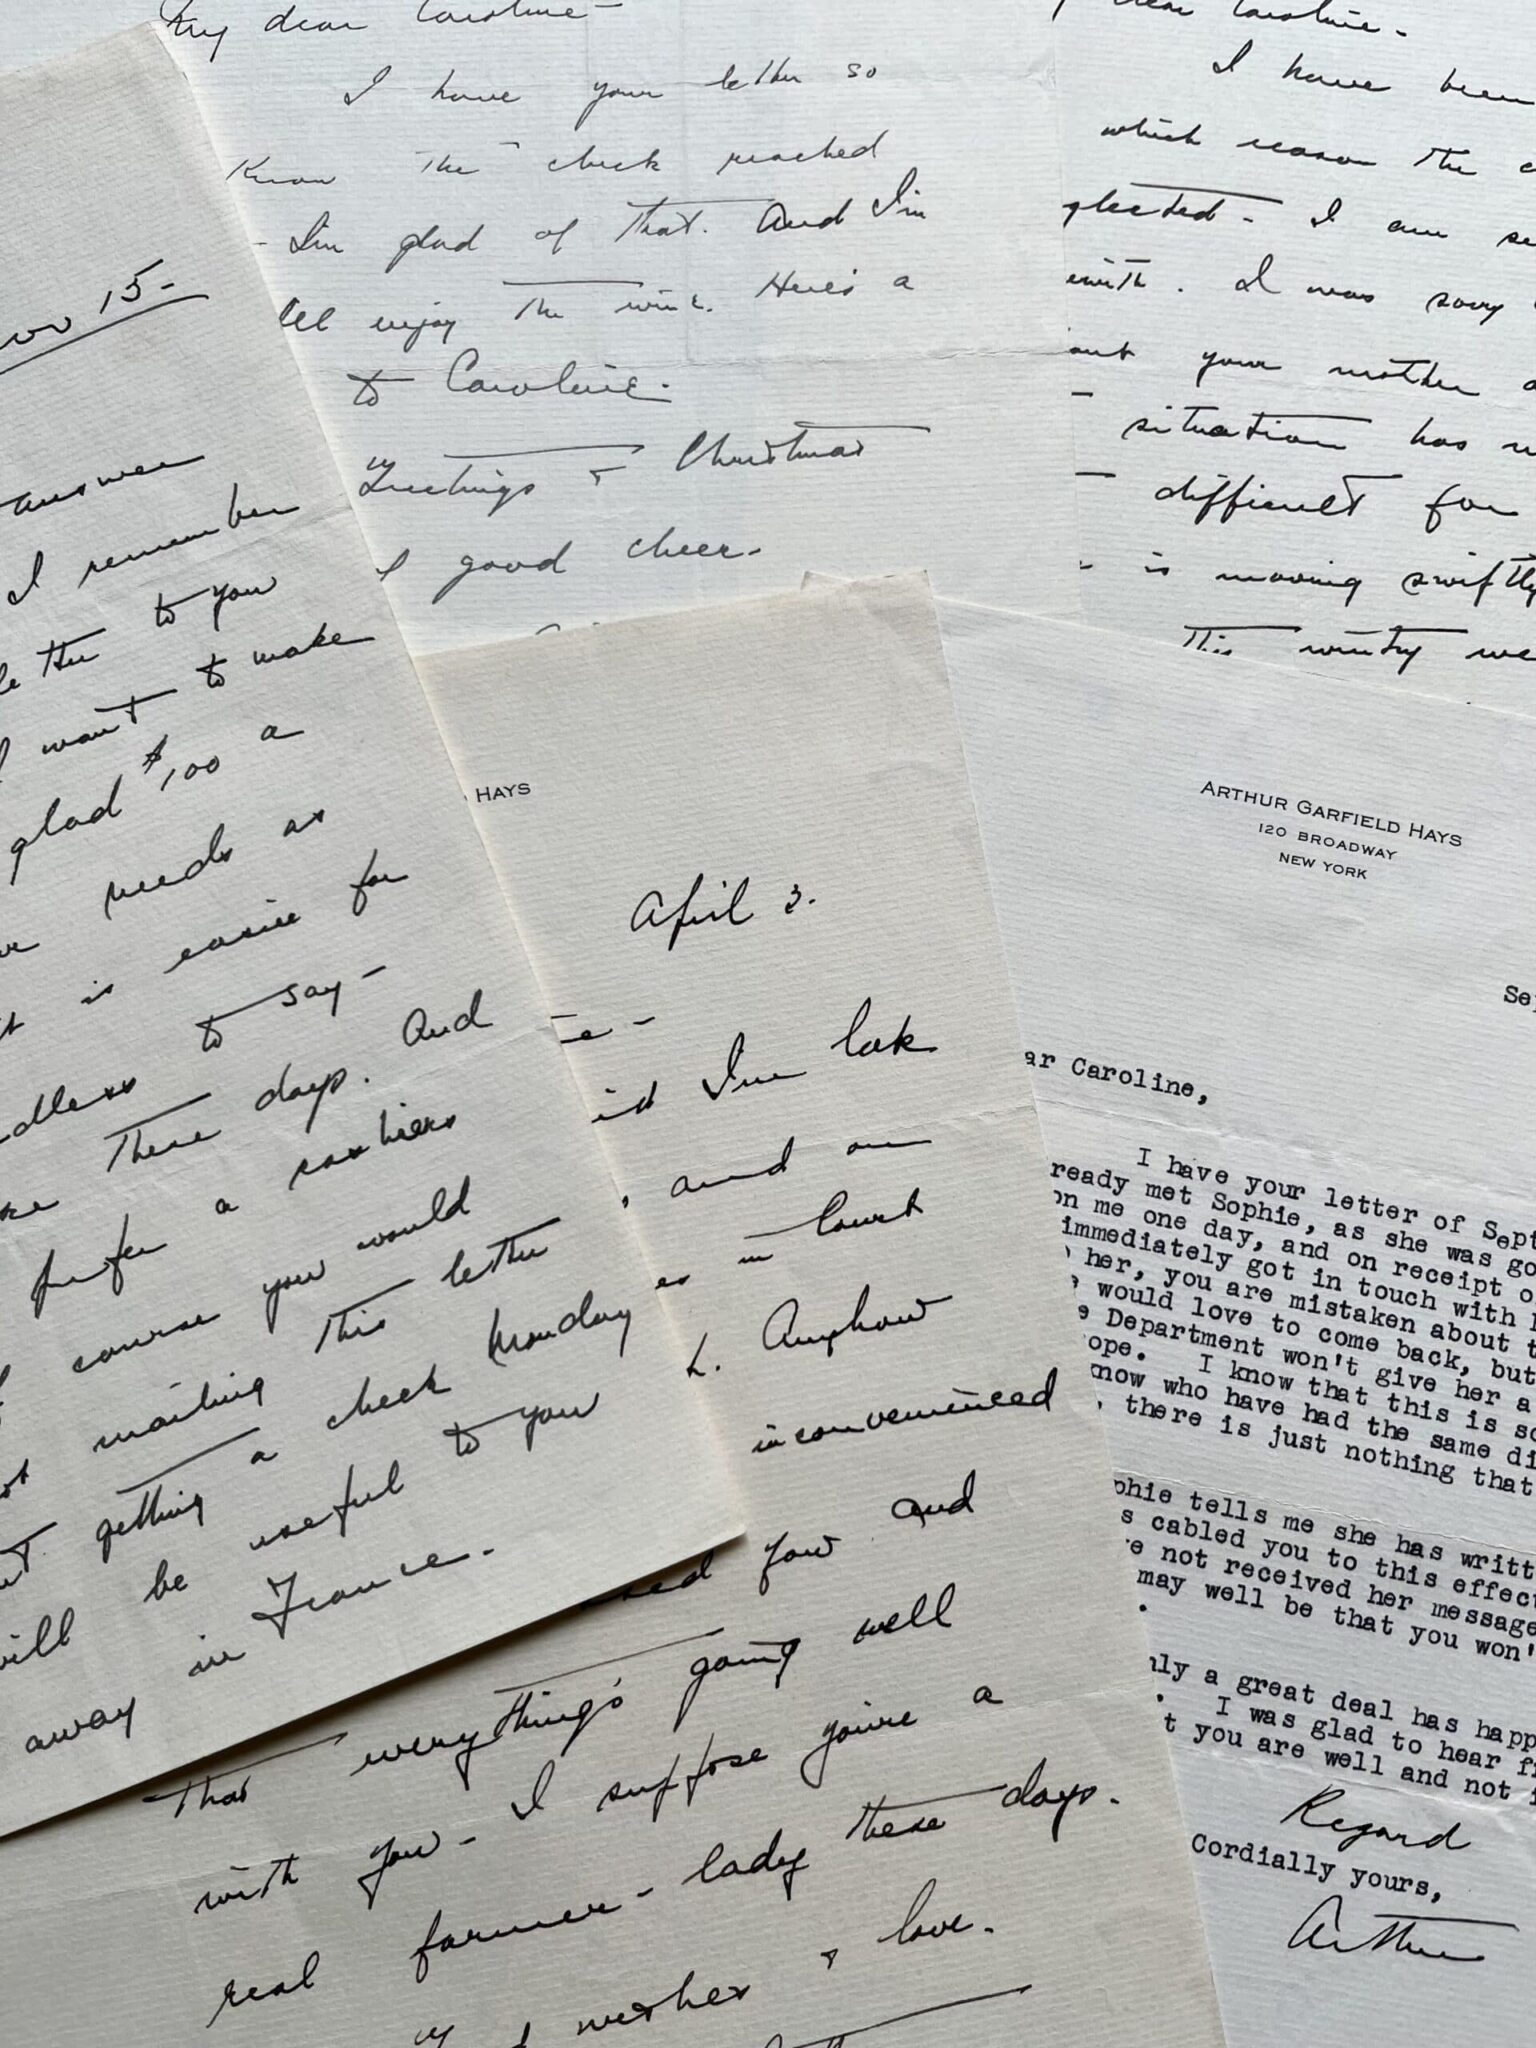 My dear Caroline -
I have your letter so
Know the check reached
- I'm glad of that. And I'm
all enjoy the wine. Here's a
to Caroline.
Greetings & Christmas
good cheer.
dear Caroline -
I have been
which reason the
glected - I am
ewith. I was sorry
out your mother
situation has
difficult for
- is moving swiftly
This wintry we
nov 15 -
answer
I remember
letter to you
I want to make
glad $100 a
needs as
it is easier for
to say -
these days. And
prefer a cashiers
course you would
mailing this letter
getting a check Monday
will be useful to you
away in France -
HAYS
April 3.
e -
I'm lok
, and am
es in Court
Anyhow
inconvenienced
you and
that everything's going well
with you - I suppose you're a
real farmer-lady these days.
wishes & love.
ARTHUR GARFIELD HAYS
120 BROADWAY
NEW YORK
Sep
ar Caroline,
I have your letter of Sept
ready met Sophie, as she was go
on me one day, and on receipt o
immediately got in touch with h
her, you are mistaken about t
would love to come back, but
e Department won't give her a
ope. I know that this is so
know who have had the same di
, there is just nothing that
phie tells me she has writt
s cabled you to this effect
e not received her message
may well be that you won'
.
nly a great deal has happ
. I was glad to hear fr
t you are well and not i
Regard
Cordially yours,
Arthur